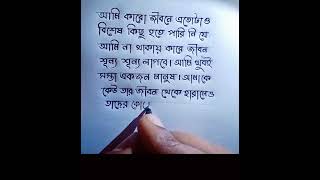 আমি কারো জীবনে এতোটাও
বিশেষ কিছু হতে পারি নি যে
আমি না থাকায় কারো জীবন
শূন্য শূন্য লাগবে। আমি খুবই
সস্তা একজন মানুষ। আমাকে
কেউ তার জীবন থেকে হারালেও
তাদের